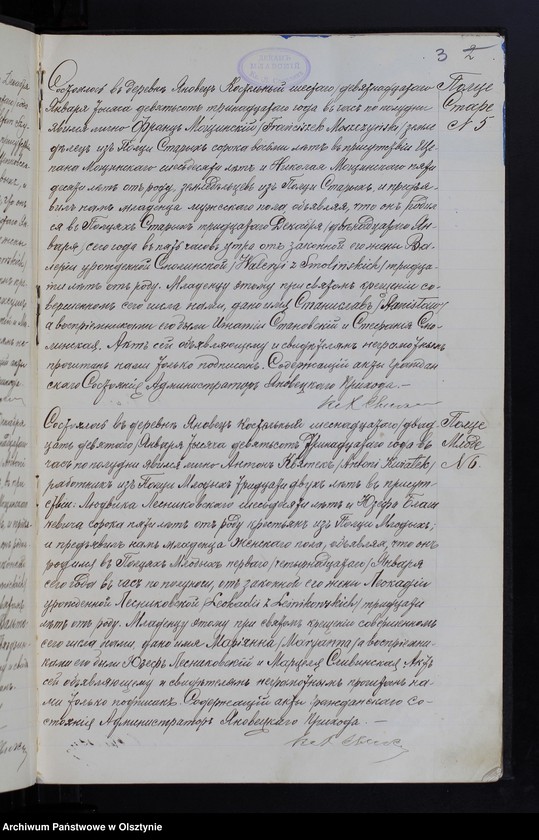 3 2
Состоялось въ деревнѣ Яновецъ Костельный шестаго /девятнадцатаго/
Января тысяча девятьсотъ тринадцатаго года въ часъ по полудни
Явился лично Францъ Мощинскій /Franciszek Moszczyński/ земле
дѣлецъ изъ Полцы Старыхъ сорока восьми лѣтъ въ присутствіи Ще
пана Мощинскаго шестьдесяти лѣтъ и Николая Мощинскаго пяти
десяти лѣтъ отъ роду, земледѣльцевъ изъ Полцы Старыхъ, и предъя
вилъ намъ младенца мужескаго пола, объявляя, что онъ родил
ся въ Полцахъ Старыхъ тридцатаго Декабря /двѣнадцатаго Ян
варя/ сего года въ пять часовъ утра отъ законной его жены Ва
леріи урожденной Смолинской /Waleryi z Smolińskich/ тридца
ти лѣтъ отъ роду. Младенцу этому при святомъ крещеніи со
вершенномъ сего числа нами, дано имя Станиславъ /Stanisław/
а воспріемниками его были Игнатій Становскій и Стефанія Смо
линская. Актъ сей объявляющему и свидѣтелямъ неграмотнымъ
прочитанъ нами только подписанъ. Содержащій акты граждан
скаго Состоянія Администраторъ Яновецкаго Прихода. —
Полце
Старе
N 5
Состоялось въ деревнѣ Яновецъ Костельный шестнадцатаго /двад
цать девятаго/ Января тысяча девятьсотъ тринадцатаго года въ
часъ по полудни явился лично Антонъ Квятекъ /Antoni Kwiatek/
работникъ изъ Полцы Млодыхъ тридцати двухъ лѣтъ въ присут
ствіи Людвика Лесниковскаго шестьдесяти лѣтъ и Юзефа Блаш
кевича сорока пяти лѣтъ отъ роду крестьянъ изъ Полцы Млодыхъ,
и предъявилъ намъ младенца женскаго пола, объявляя, что онъ
родился въ Полцахъ Млодыхъ перваго /четырнадцатаго/ Января
сего года въ часъ по полуночи, отъ законной его жены Леокадіи
урожденной Лесниковской /Leokadii z Leśnikowskich/ тридцати
лѣтъ отъ роду. Младенцу этому при святомъ крещеніи совершенномъ
сего числа нами, дано имя Маріанна /Maryanna/ а воспріемни
ками его были Юзефъ Лесниковскій и Марцеля Сливинская. Актъ
сей объявляющему и свидѣтелямъ неграмотнымъ прочитанъ на
ми только подписанъ. Содержащій акты гражданскаго Со
стоянія Администраторъ Яновецкаго Прихода. —
Полце
Млоде
N 6.
Archiwum Państwowe w Olsztynie